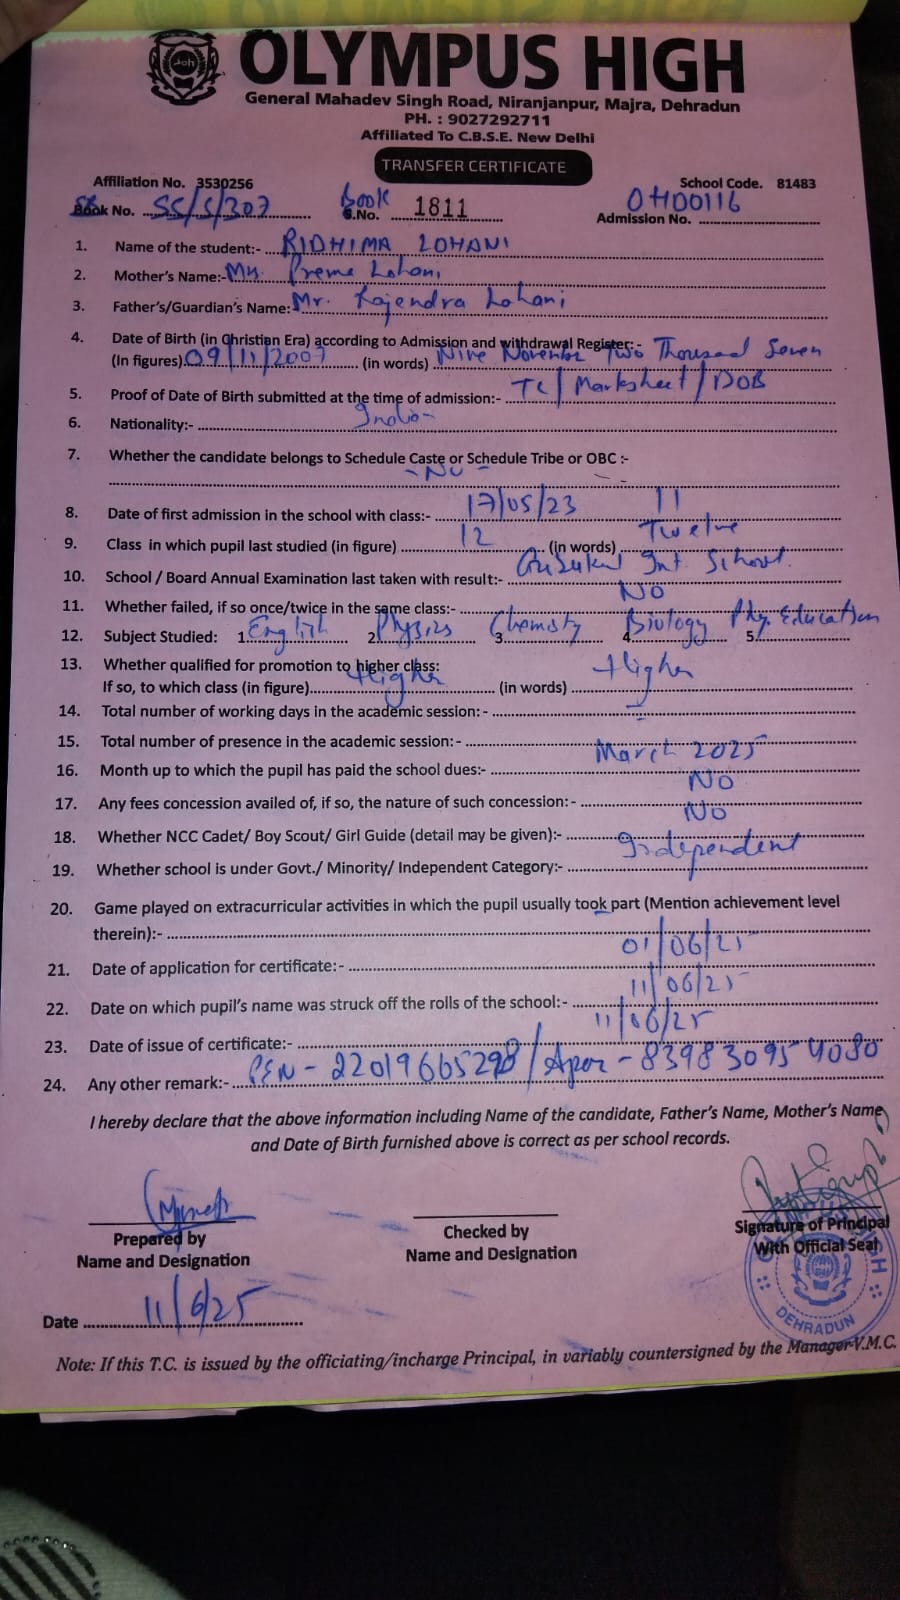 OLYMPUS HIGH
General Mahadev Singh Road, Niranjanpur, Majra, Dehradun
PH. : 9027292711
Affiliated To C.B.S.E. New Delhi
TRANSFER CERTIFICATE
Affiliation No. 3530256 School Code. 81483
Book No. SS/S/307 Book S.No. 1811 Admission No. OH00116
1. Name of the student:- RIDHIMA LOHANI
2. Mother's Name:- Mrs. Prema Lohani
3. Father's/Guardian's Name: Mr. Rajendra Lohani
4. Date of Birth (in Christian Era) according to Admission and withdrawal Register:-
(In figures) 09/11/2007 (in words) Nine November Two Thousand Seven
5. Proof of Date of Birth submitted at the time of admission:- TC/Marksheet/DOB
6. Nationality:- India
7. Whether the candidate belongs to Schedule Caste or Schedule Tribe or OBC :-
- No -
8. Date of first admission in the school with class:- 17/05/23 11
9. Class in which pupil last studied (in figure) 12 (in words) Twelve
10. School / Board Annual Examination last taken with result:- Int. School
11. Whether failed, if so once/twice in the same class:- NO
12. Subject Studied: 1. English 2. Physics 3. Chemisty 4. Biology 5. Phy. Education
13. Whether qualified for promotion to higher class:
If so, to which class (in figure) Higher (in words) Higher
14. Total number of working days in the academic session: - -
15. Total number of presence in the academic session: -
16. Month up to which the pupil has paid the school dues:- March 2025
17. Any fees concession availed of, if so, the nature of such concession: - NO
18. Whether NCC Cadet/ Boy Scout/ Girl Guide (detail may be given):- NO
19. Whether school is under Govt./ Minority/ Independent Category:- Independent
20. Game played on extracurricular activities in which the pupil usually took part (Mention achievement level
therein):-
21. Date of application for certificate:- 01/06/25
22. Date on which pupil's name was struck off the rolls of the school:- 11/06/25
23. Date of issue of certificate:- 11/06/25
24. Any other remark:- PEN - 22019665298/Apar - 839830954080
I hereby declare that the above information including Name of the candidate, Father's Name, Mother's Name
and Date of Birth furnished above is correct as per school records.
Prepared by Checked by Signature of Principal
Name and Designation Name and Designation With Official Seal
DEHRADUN
Date 11/6/25
Note: If this T.C. is issued by the officiating/incharge Principal, in variably countersigned by the Manager-V.M.C.